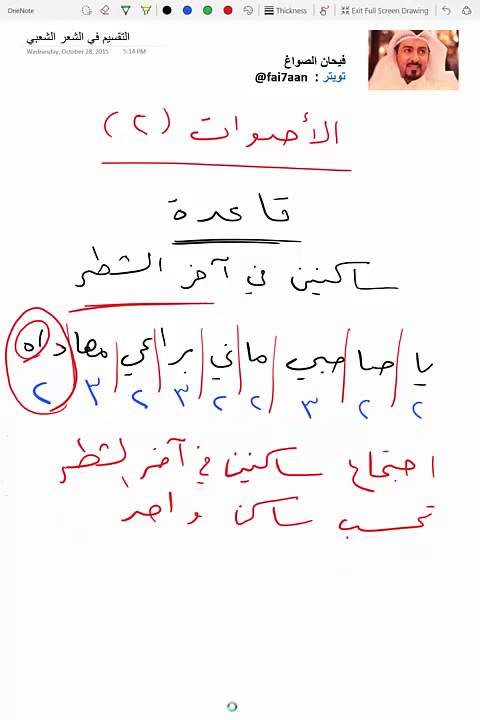 OneNote
Thickness
Exit Full Screen Drawing
التقسيم في الشعر الشعبي
Wednesday, October 28, 2015 5:14 PM
فيحان الصواغ
تويتر : @fai7aan
الأصوات (٢)
قاعدة
ساكنين في آخر الشطر
يا | صا | حبي | ما | ني | برا | عي | مها | داه
٢ ٢ ٣ ٢ ٢ ٣ ٢ ٣ ٢
اجتماع ساكنين في آخر الشطر
تحسب ساكن واحد